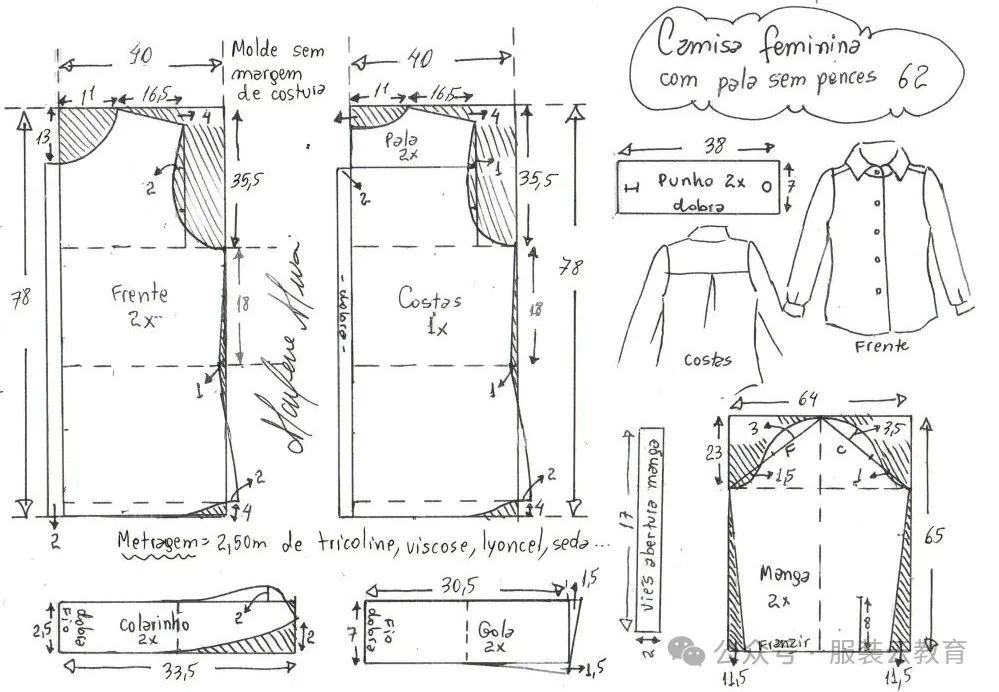 Camisa feminina
com pala sem pences 62
40
Molde sem
margem
de costura
11
16,5
4
13
2
35,5
78
Frente
2x
18
1
2
4
2
Marlene Mukai
40
11
16,5
4
Pala
2x
1
2
35,5
78
- dobra -
Costas
1x
18
1
2
4
38
Punho 2x
dobra
7
costas
Frente
Metragem = 2,50m de tricoline, viscose, lyoncel, seda...
2,5
Fio
dobra
Colarinho
2x
2
2
33,5
30,5
1,5
7
dobra
Fio
Gola
2x
1,5
17
viés abertura manga
2
64
23
3
F
C
3,5
1,5
1
65
Manga
2x
8
Franzir
11,5
11,5
公众号 · 服装云教育